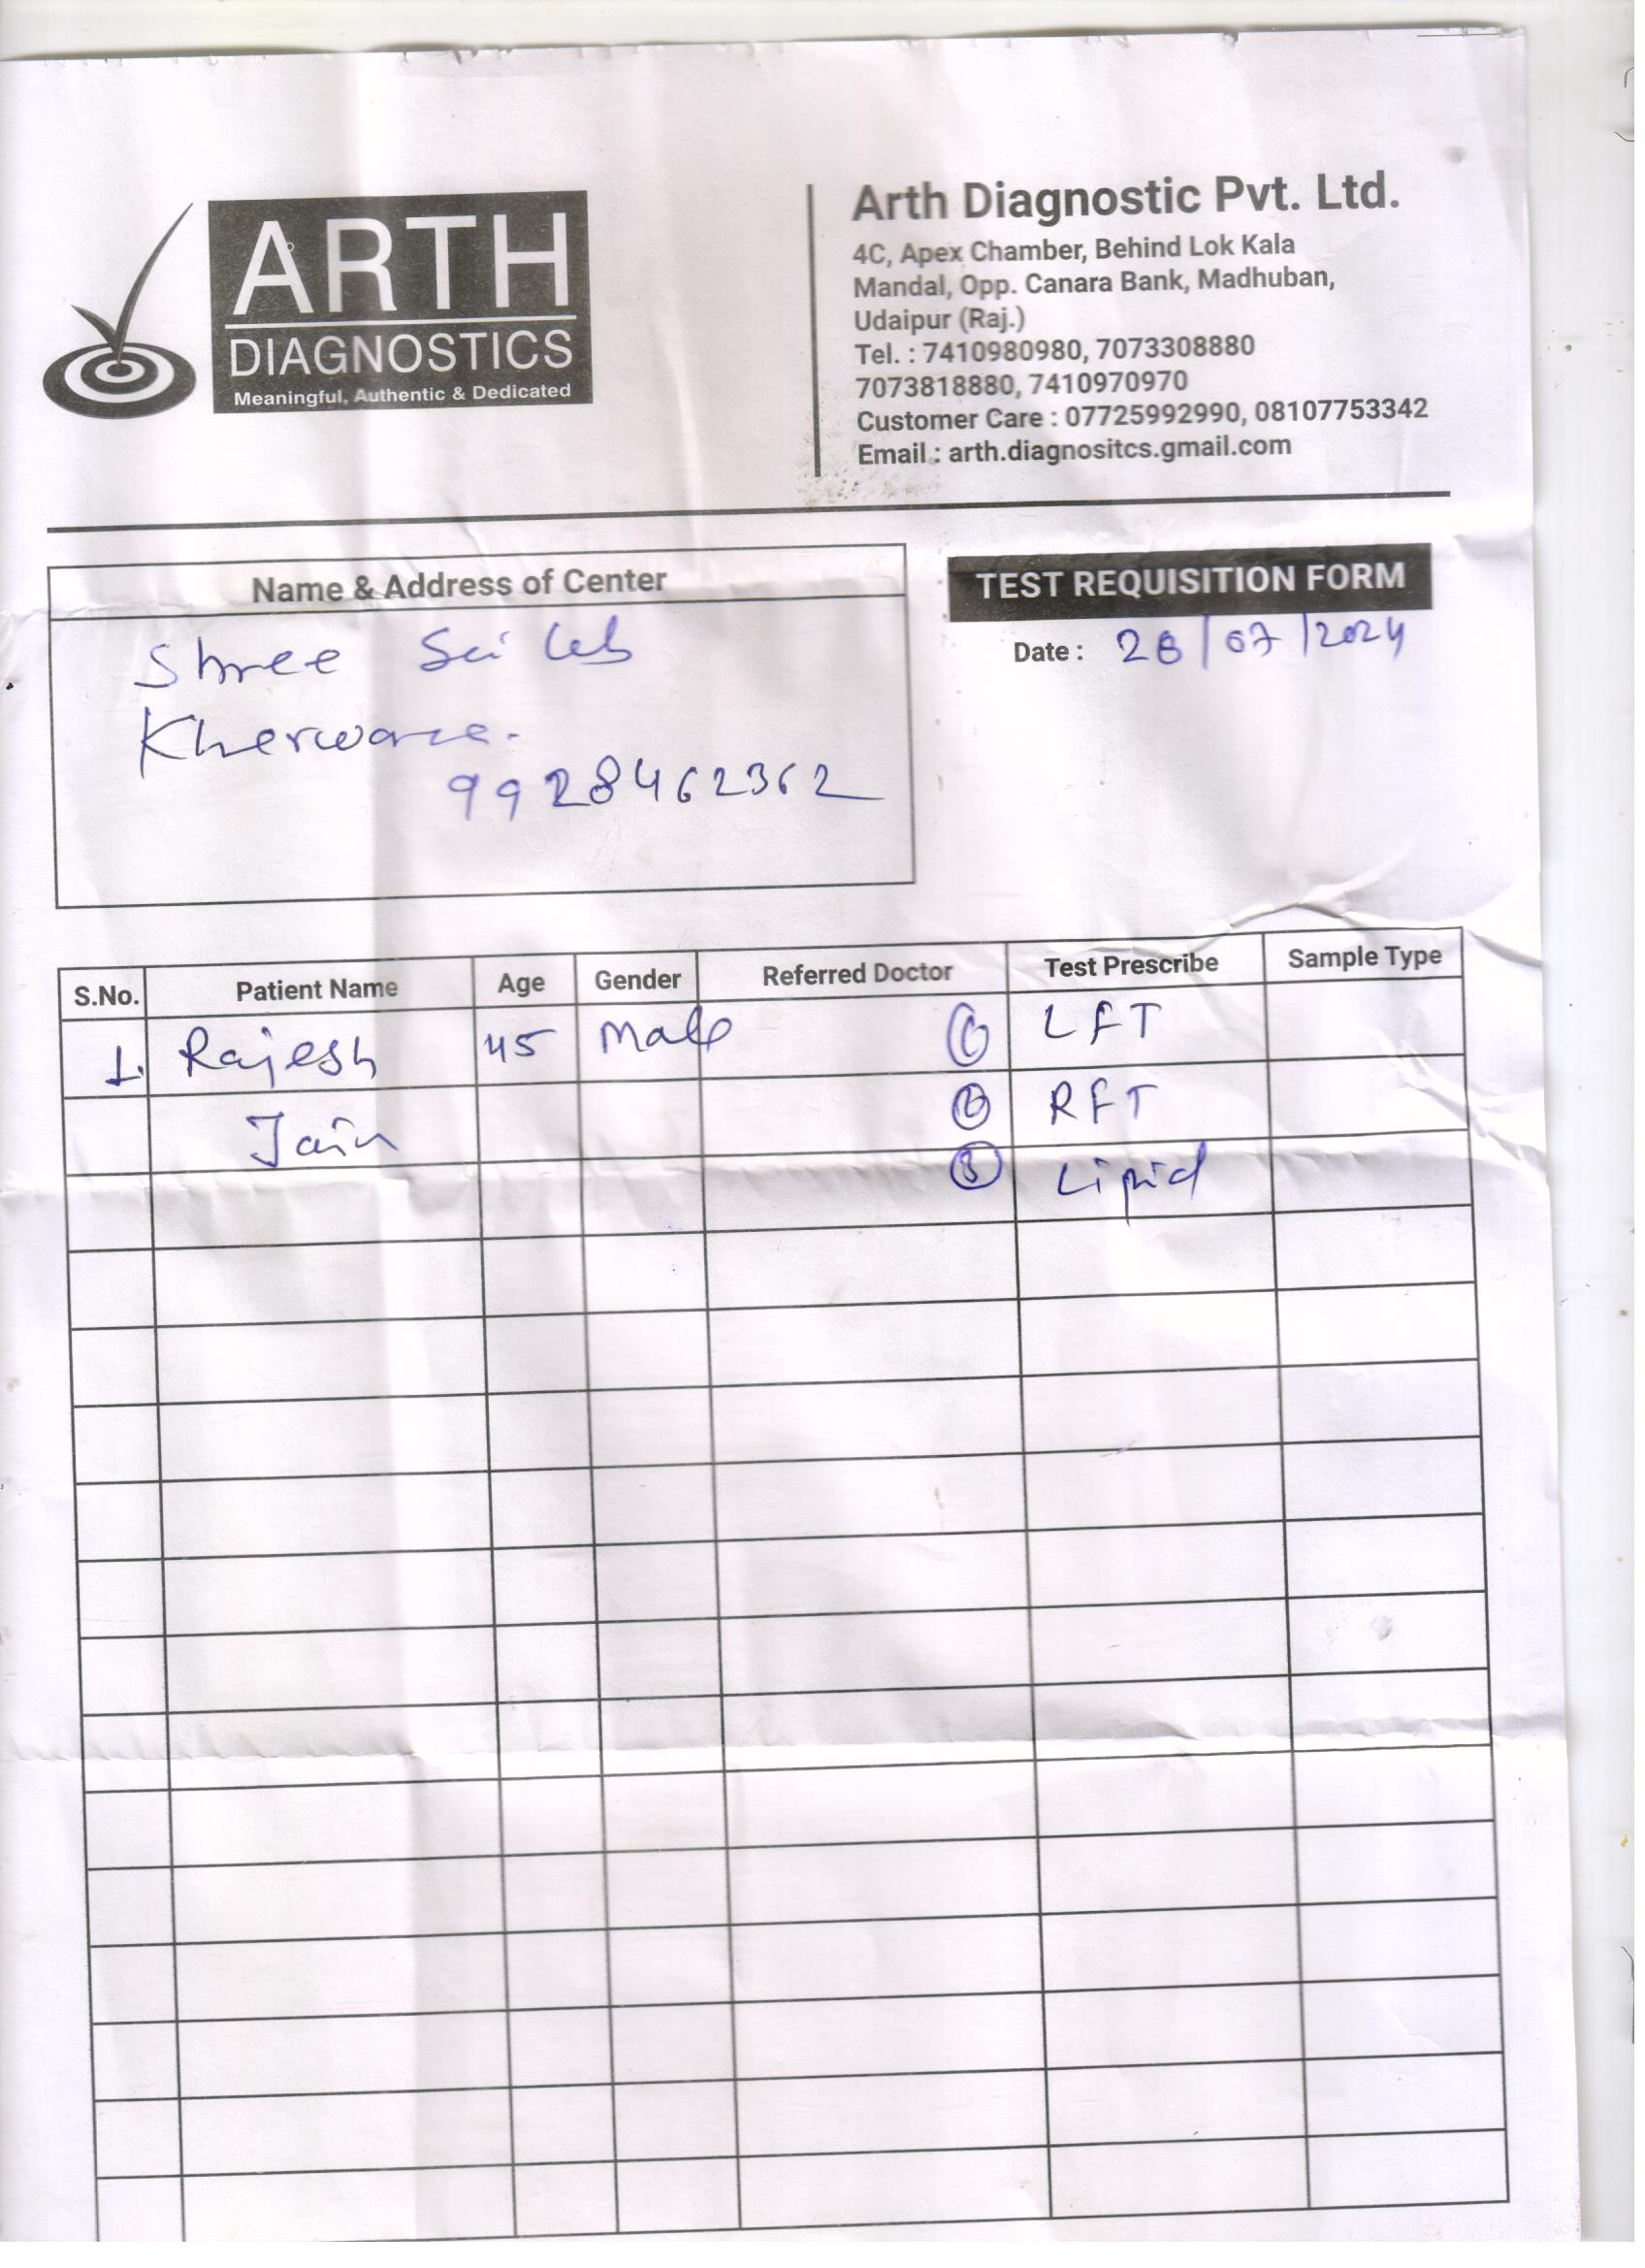 ARTH
DIAGNOSTICS
Meaningful, Authentic & Dedicated
Arth Diagnostic Pvt. Ltd.
4C, Apex Chamber, Behind Lok Kala
Mandal, Opp. Canara Bank, Madhuban,
Udaipur (Raj.)
Tel. : 7410980980, 7073308880
7073818880, 7410970970
Customer Care : 07725992990, 08107753342
Email : arth.diagnositcs.gmail.com
Name & Address of Center
Shree Sai Lab
Kherwara.
9928462362
TEST REQUISITION FORM
Date : 28/07/2024
S.No. Patient Name Age Gender Referred Doctor Test Prescribe Sample Type
1. Rajesh 45 Male ① LFT
Jain ② RFT
③ Lipid